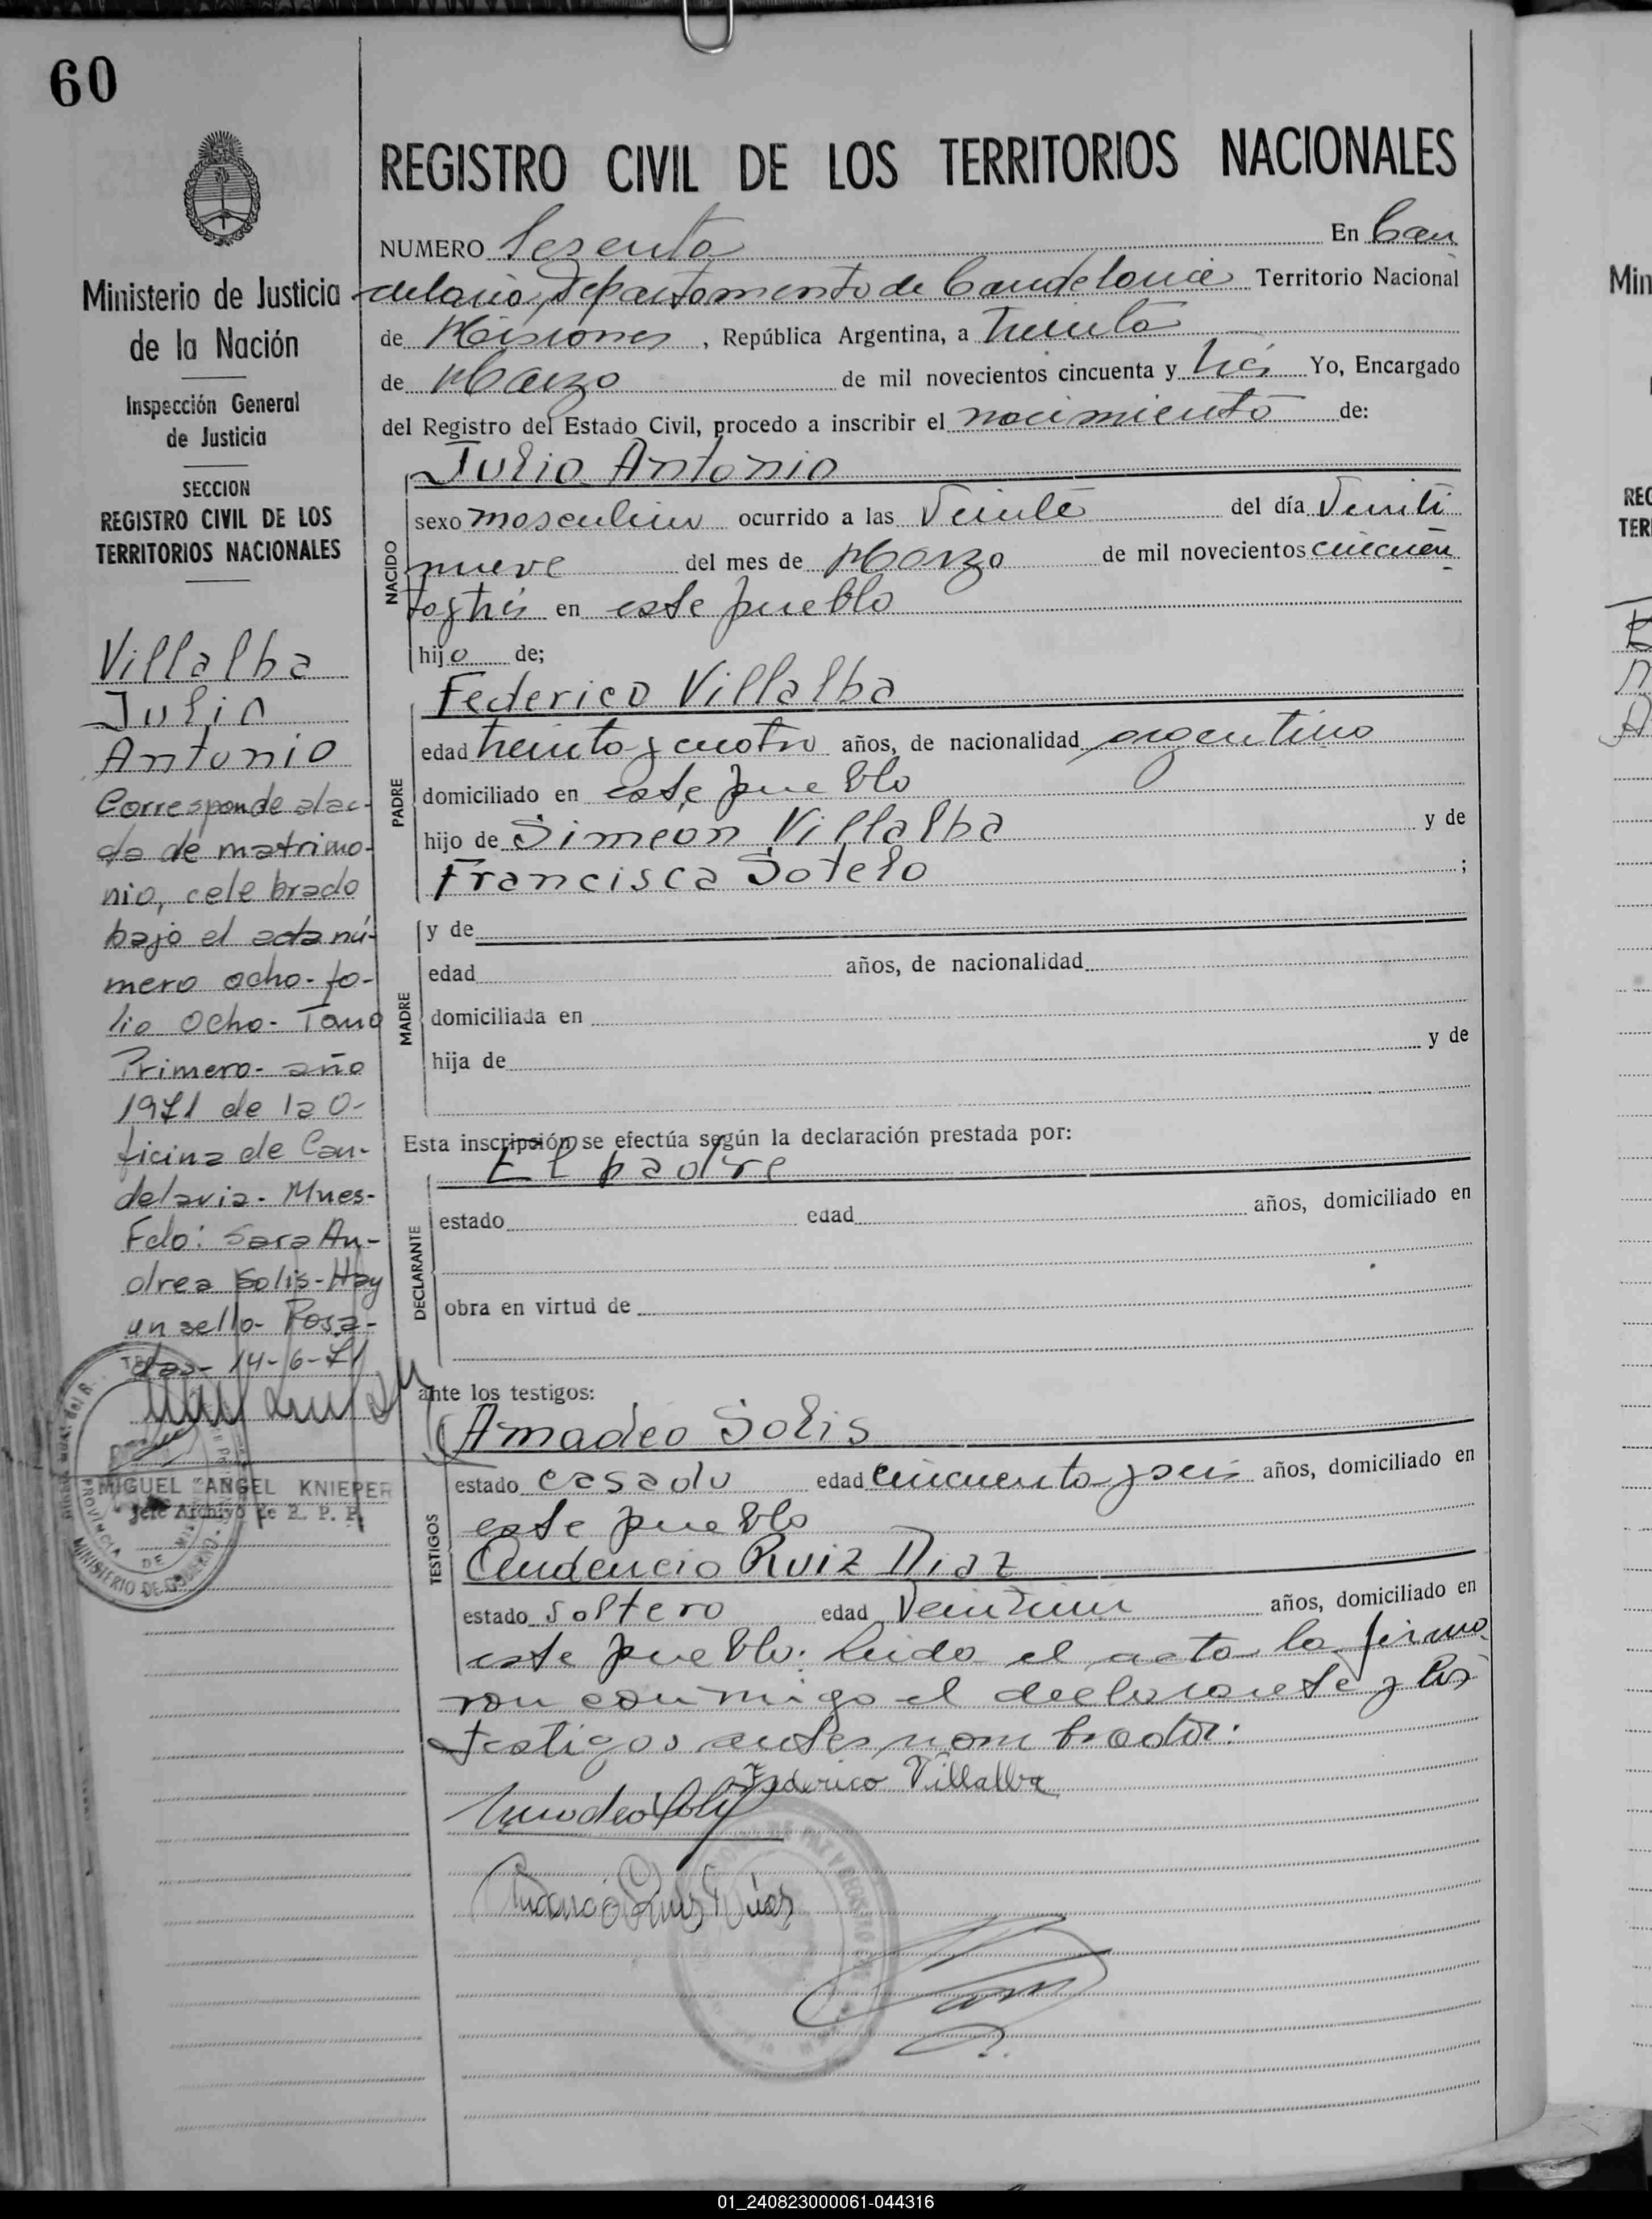 60
Ministerio de Justicia
de la Nación
Inspección General
de Justicia
SECCION
REGISTRO CIVIL DE LOS
TERRITORIOS NACIONALES
Villalba
Julio
Antonio
Corresponde al ac-
ta de matrimo-
nio, celebrado
bajo el acta nú-
mero ocho- fo-
lio Ocho- Tomo
Primero- año
1971 de la O-
ficina de Can-
delaria- Mnes-
Fdo: Sara An-
drea Solis- Hay
un sello- Posa-
das- 14-6-71
MIGUEL ANGEL KNIEPER
Jefe Archivo de R. P. P.
PROVINCIA DE
MINISTERIO DE
REGISTRO CIVIL DE LOS TERRITORIOS NACIONALES
NUMERO Sesenta En Can
delaria, Departamento de Candelaria Territorio Nacional
de Misiones, República Argentina, a Treinta
de Marzo de mil novecientos cincuenta y trés Yo, Encargado
del Registro del Estado Civil, procedo a inscribir el nacimiento de:
Julio Antonio
NACIDO
sexo masculino ocurrido a las Veinte del día Veinti
nueve del mes de Marzo de mil novecientos cincuen
ta y trés en este pueblo
hijo de;
Federico Villalba
PADRE
edad treinta y cuatro años, de nacionalidad argentino
domiciliado en este pueblo
hijo de Simeón Villalba y de
Francisca Sotelo ;
MADRE
y de
edad años, de nacionalidad
domiciliada en
hija de y de
Esta inscripción se efectúa según la declaración prestada por:
El padre
DECLARANTE
estado edad años, domiciliado en
obra en virtud de
ante los testigos:
Amadeo Solis
TESTIGOS
estado casado edad cincuenta y seis años, domiciliado en
este pueblo
Audencio Ruiz Diaz
estado soltero edad Veintiun años, domiciliado en
este pueblo. Leido el acta la firma
ron conmigo el declarante y los
testigos antes nombrados:
Federico Villalba
Amadeo Solis
Ruiz Diaz
01_240823000061-044316